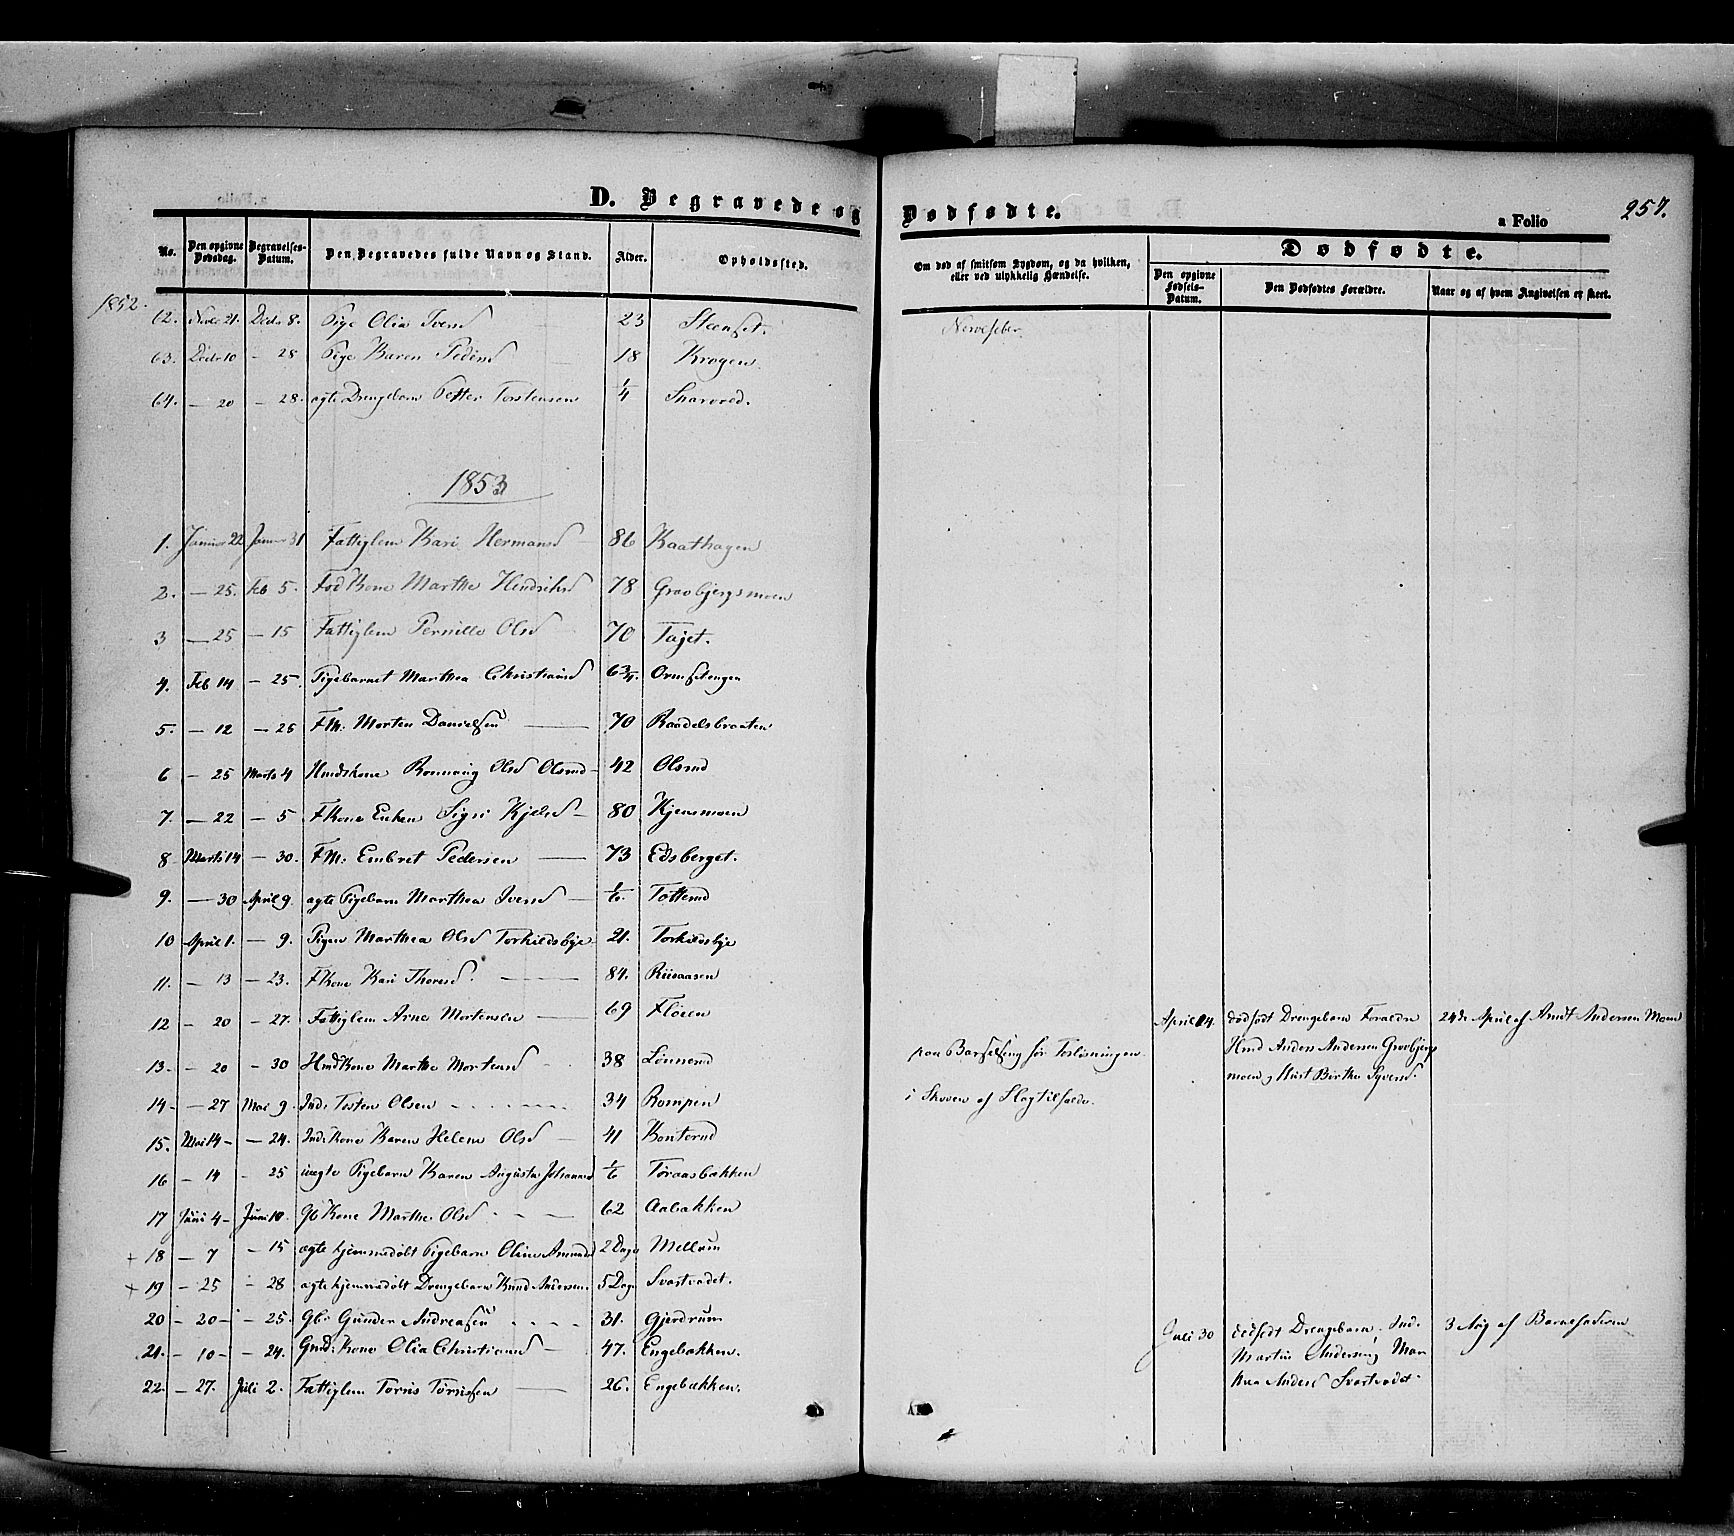 D. Begravede og Dødfødte.
a Folio 257.
No. Den opgivne Dødsdag. Begravelses-Datum. Den Begravedes fulde Navn og Stand. Alder. Opholdssted. Om død af smitsom Sygdom, og da hvilken, eller ved ulykkelig Hændelse. Dødfødte. Den opgivne Fødsels-Datum. Den Dødfødtes Forældre. Naar og af hvem Angivelsen er skeet.
1852.
62. Novbr 21. Decbr 8. Pige Olia Iversd 23 Steenset. Nervefeber
63. Decbr 10 - 28 Pige Karen Pedersd 18 Krogen.
64. - 20 - 28. ægte Drengebarn Petter Torstensen 1/4 Skarvød.
1853
1. Januar 22 Januar 31 Fattiglem Kari Hermansd 86 Kaathagen
2. - 25. Feb 5. Fød Kone Marthe Hendriksd 78 Gravbjergsmoen
3 - 25 - 15 Fattiglem Pernille Olsd 70 Tajet.
4. Feb 14 - 25. Pigebarnet Marthea Christiansd 6 3/4. Ormsetengen
5. - 12 - 25 F.M. Morten Danielsen 70 Raadelsbraaten
6 - 25 Marts 4 Hmdskone Rønnaug Olsd Olsrud 42 Olsrud
7. - 22 - 5 Fkone Enken Sigri Kjelsd 80 Kjensmoen
8 Marts 14 - 30. F.M. Embret Pedersen 73 Edsberget.
9. - 30 April 9. ægte Pigebarn Marthea Iversd 1/6. Totterud
10 April 1. - 9. Pigen Marthea Olsd Torkildsbye 21. Torkildsbye
11. - 13 - 23. Fkone Kari Thoresd 84. Riisaasen
12 - 20 - 27. Fattiglem Arne Mortensen 69 Fløien
April 14. dødfødt Drengebarn Forældre 24de April af Arndt Andersen Moen
Hmd Anders Andersen Gravbjergs
moen og Hust Birthe Syversd.
13. - 20 - 30 Hmdkone Marthe Mortensd 38 Lønnerud paa Barselseng før Forløsningen
14. - 27 Mai 9. Ind. Torsten Olsen 34 Rompen i Skoven af Slagtilfælde.
15. Mai 14 - 24. Ind. Kone Karen Helene Olsd 41 Konterud
16 - 14 - 25 uægte Pigebarn Karen Augusta Johannesd 1/6 Toraasbakken
17 Juni 4 Juni 10. Gb Kone Marthe Olsd 62 Aabakken
+ 18 - 7 - 15 ægte hjemmedøbt Pigebarn Oline Amundsd 2 Dage Mellum
+ 19 - 25 - 28 ægte hjemmedøbt Drengebarn Knud Andersen 5 Dage Svartvadet.
20 - 20 - 25. Gbr Gunder Andreasen 31. Gjerdrum
Juli 30 dødfødt Drengebarn, Ind. 3 Aug af Barnefaderen
Martin Andersen, Mar
thea Andersd Svartvadet.
21. - 10 - 24. Gmd. Kone Olia Christiansd 47. Engebakken.
22. - 27. Juli 2. Fattiglem Tørris Tørrissen 26. Engebakken.